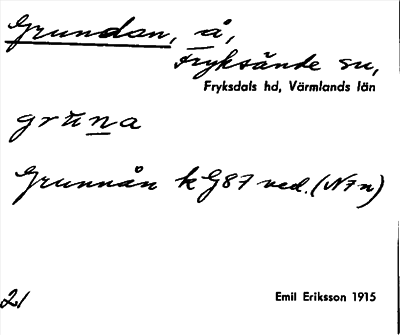 Grundan, å,
Fryksände sn,
Fryksdals hd, Värmlands län
gruna
Grunnån k G87 ved. (N7n)
21
Emil Eriksson 1915